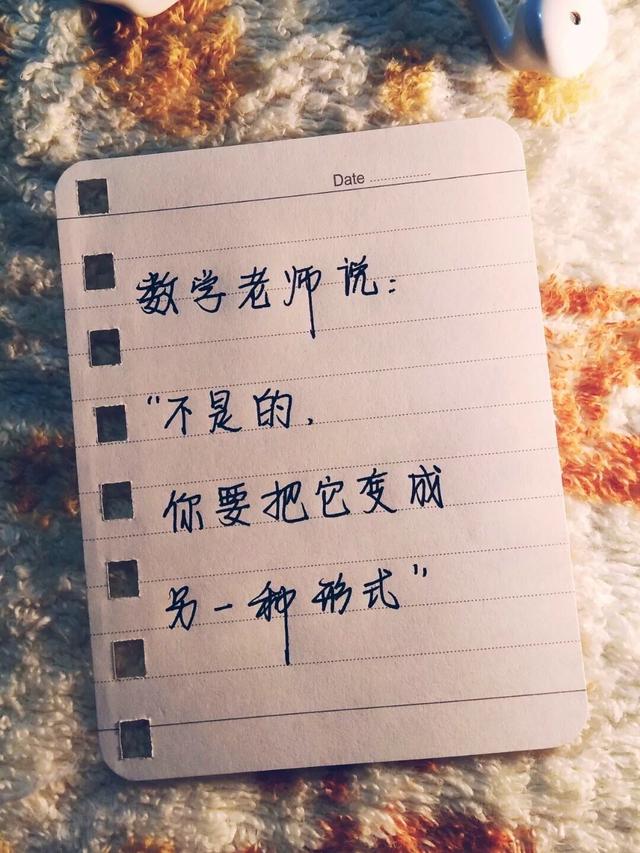 Date
数学老师说：
“不是的，
你要把它变成
另一种形式”